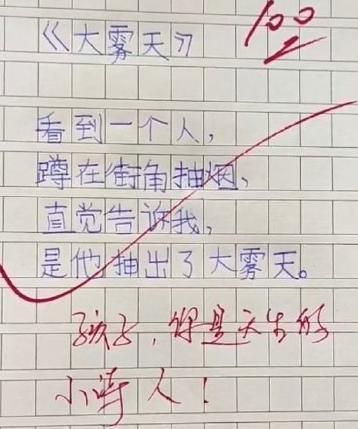 《大雾天》
100
看到一个人，
蹲在街角抽烟、
直觉告诉我，
是他抽出了大雾天。
孩子，你是天生的
小诗人！